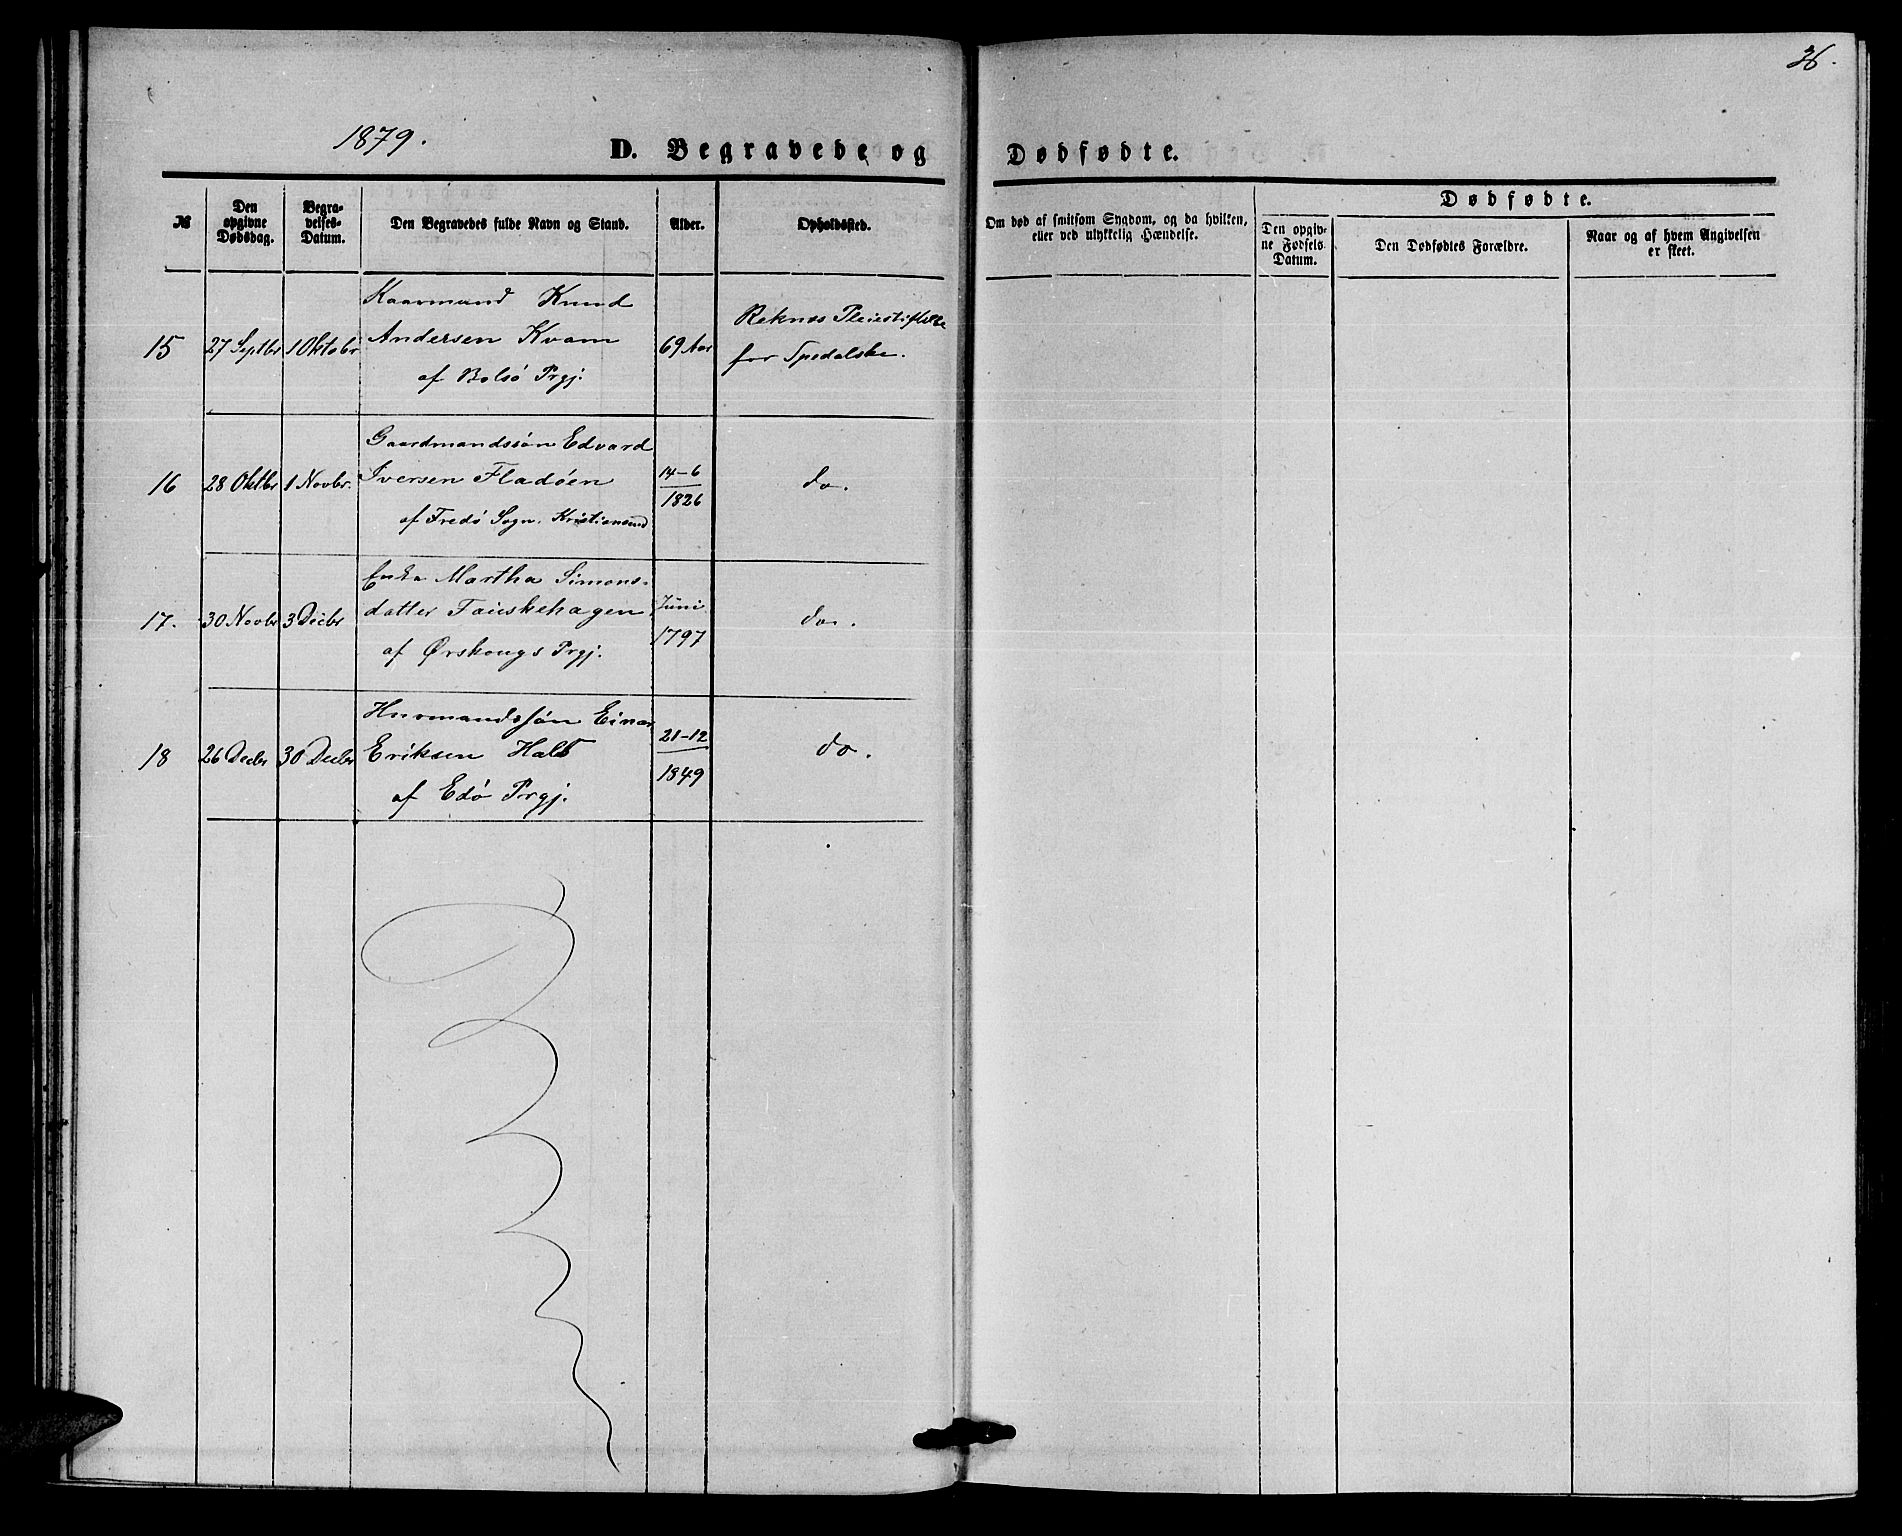 36.
1879.
D. Begravede og Dødfødte.
№
Den opgivne Dødsdag.
Begravelses-Datum.
Den Begravedes fulde Navn og Stand.
Alder.
Opholdssted.
Om død af smitsom Sygdom, og da hvilken, eller ved ulykkelig Hændelse.
Dødfødte.
Den opgivne Fødsels Datum.
Den Dødfødtes Forældre.
Naar og af hvem Angivelsen er skeet.
15
27 Septbr
1 Oktobr
Kaarmand Knud
Andersen Kvam
af Bolsö Prgj.
69 Aar
Reknes Pleiestiftelse
for Spedalske.
16
28 Oktbr
1 Novbr.
Gaardmandssön Edvard
Iversen Fladöen
af Fredö Sogn. Kristiansund
14-6
1826
do.
17.
30 Novbr
3 Decbr
Enke Martha Simons-
datter Tauskehagen
af Ørskougs Prgj.
Juni
1797
do.
18
26 Decbr
30 Decbr
Husmandssön Einar
Eriksen
af Edö Prgj.
21-12
1849
do.